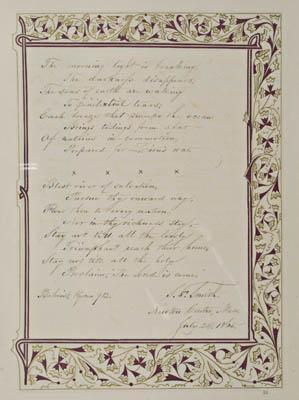 The morning light is breaking,
The darkness disappears;
The sons of earth are waking
To penitential tears;
Each breeze that sweeps the ocean
Brings tidings from afar
Of nations in commotion,
Prepared for Zion's war.
x x x x
Blest river of salvation,
Pursue thy onward way;
Flow thou to every nation,
Nor in thy richness stay;
Stay not till all the lowly
Triumphant reach their home;
Stay not till all the holy
Proclaim, The Lord is come.
Baptist Hymn 912.
S. F. Smith.
Newton Centre, Mass.
July 24,